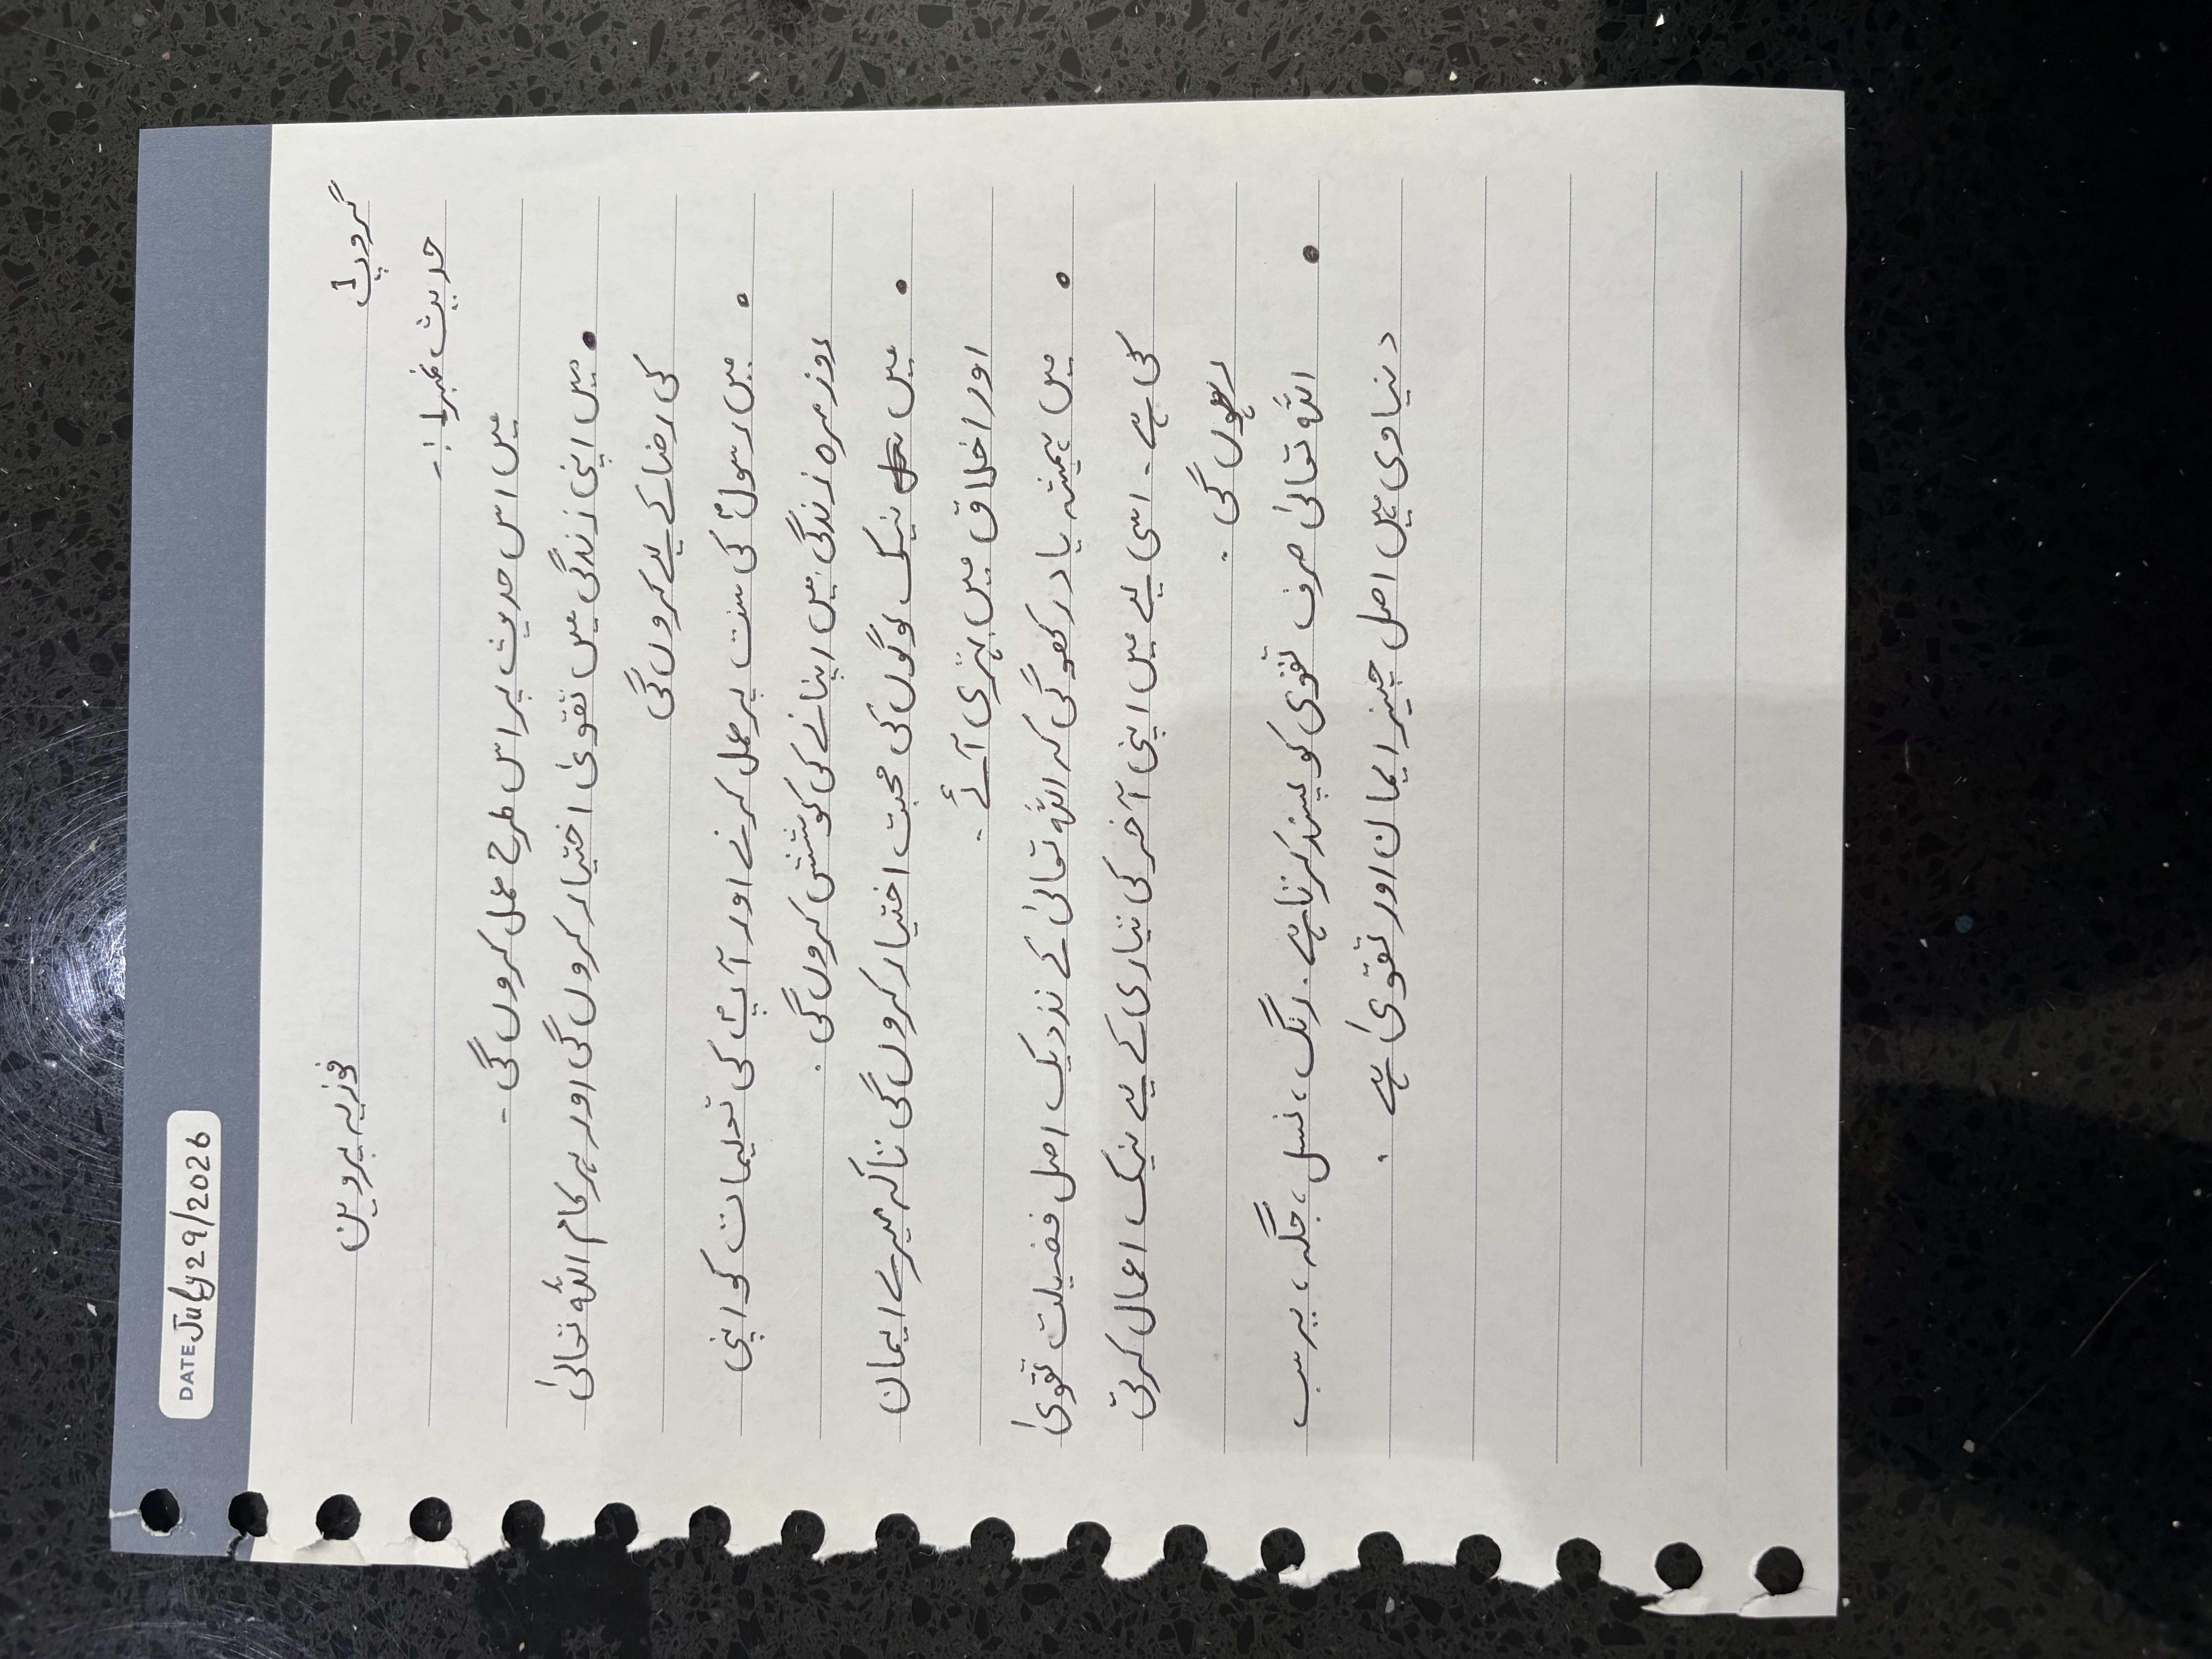 DATE July 29/2026
گروپ 1 فوزیہ پروین
حدیث نمبر 1 :-
میں اس حدیث پر اس طرح عمل کروں گی -
• میں اپنی زندگی میں تقویٰ اختیار کروں گی اور ہر کام اللہ تعالیٰ
کی رضا کے لیے کروں گی
• میں رسولؐ کی سنت پر عمل کرنے اور آپؐ کی تعلیمات کو اپنی
روزمرہ زندگی میں اپنانے کی کوشش کروں گی .
• میں نیک لوگوں کی محبت اختیار کروں گی تاکہ میرے ایمان
اور اخلاق میں بہتری آئے .
• میں ہمیشہ یاد رکھو گی کہ اللہ تعالیٰ کے نزدیک اصل فضیلت تقویٰ
کی ہے - اسی لیے میں اپنی آخر کی تیاری کے لیے نیک اعمال کرتی
رہوں گی .
• اللہ تعالیٰ صرف تقوی کو پسند کرتا ہے . رنگ ، نسل ، جگہ ، یہ سب
دنیاوی ہیں اصل چیز ایمان اور تقویٰ ہے .